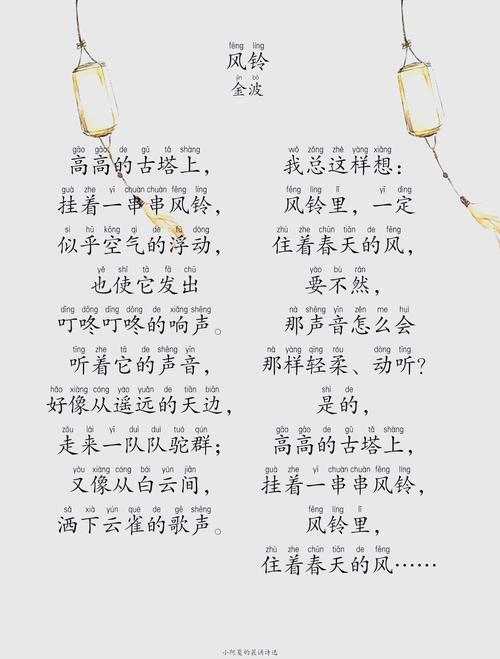 fēng líng
风铃
jīn bō
金波
gāo gāo de gǔ tǎ shàng
高高的古塔上，
guà zhe yī chuàn chuàn fēng líng
挂着一串串风铃，
sì hū kōng qì de fú dòng
似乎空气的浮动，
yě shǐ tā fā chū
也使它发出
dīng dōng dīng dōng de xiǎng shēng
叮咚叮咚的响声。
tīng zhe tā de shēng yīn
听着它的声音，
hǎo xiàng cóng yáo yuǎn de tiān biān
好像从遥远的天边，
zǒu lái yī duì duì tuó qún
走来一队队驼群；
yòu xiàng cóng bái yún jiān
又像从白云间，
sǎ xià yún què de gē shēng
洒下云雀的歌声。
wǒ zǒng zhè yàng xiǎng
我总这样想：
fēng líng lǐ yī dìng
风铃里，一定
zhù zhe chūn tiān de fēng
住着春天的风，
yào bù rán
要不然，
nà shēng yīn zěn me huì
那声音怎么会
nà yàng qīng róu dòng tīng
那样轻柔、动听？
shì de
是的，
gāo gāo de gǔ tǎ shàng
高高的古塔上，
guà zhe yī chuàn chuàn fēng líng
挂着一串串风铃，
fēng líng lǐ
风铃里，
zhù zhe chūn tiān de fēng
住着春天的风……
小阿夏的晨诵诗选